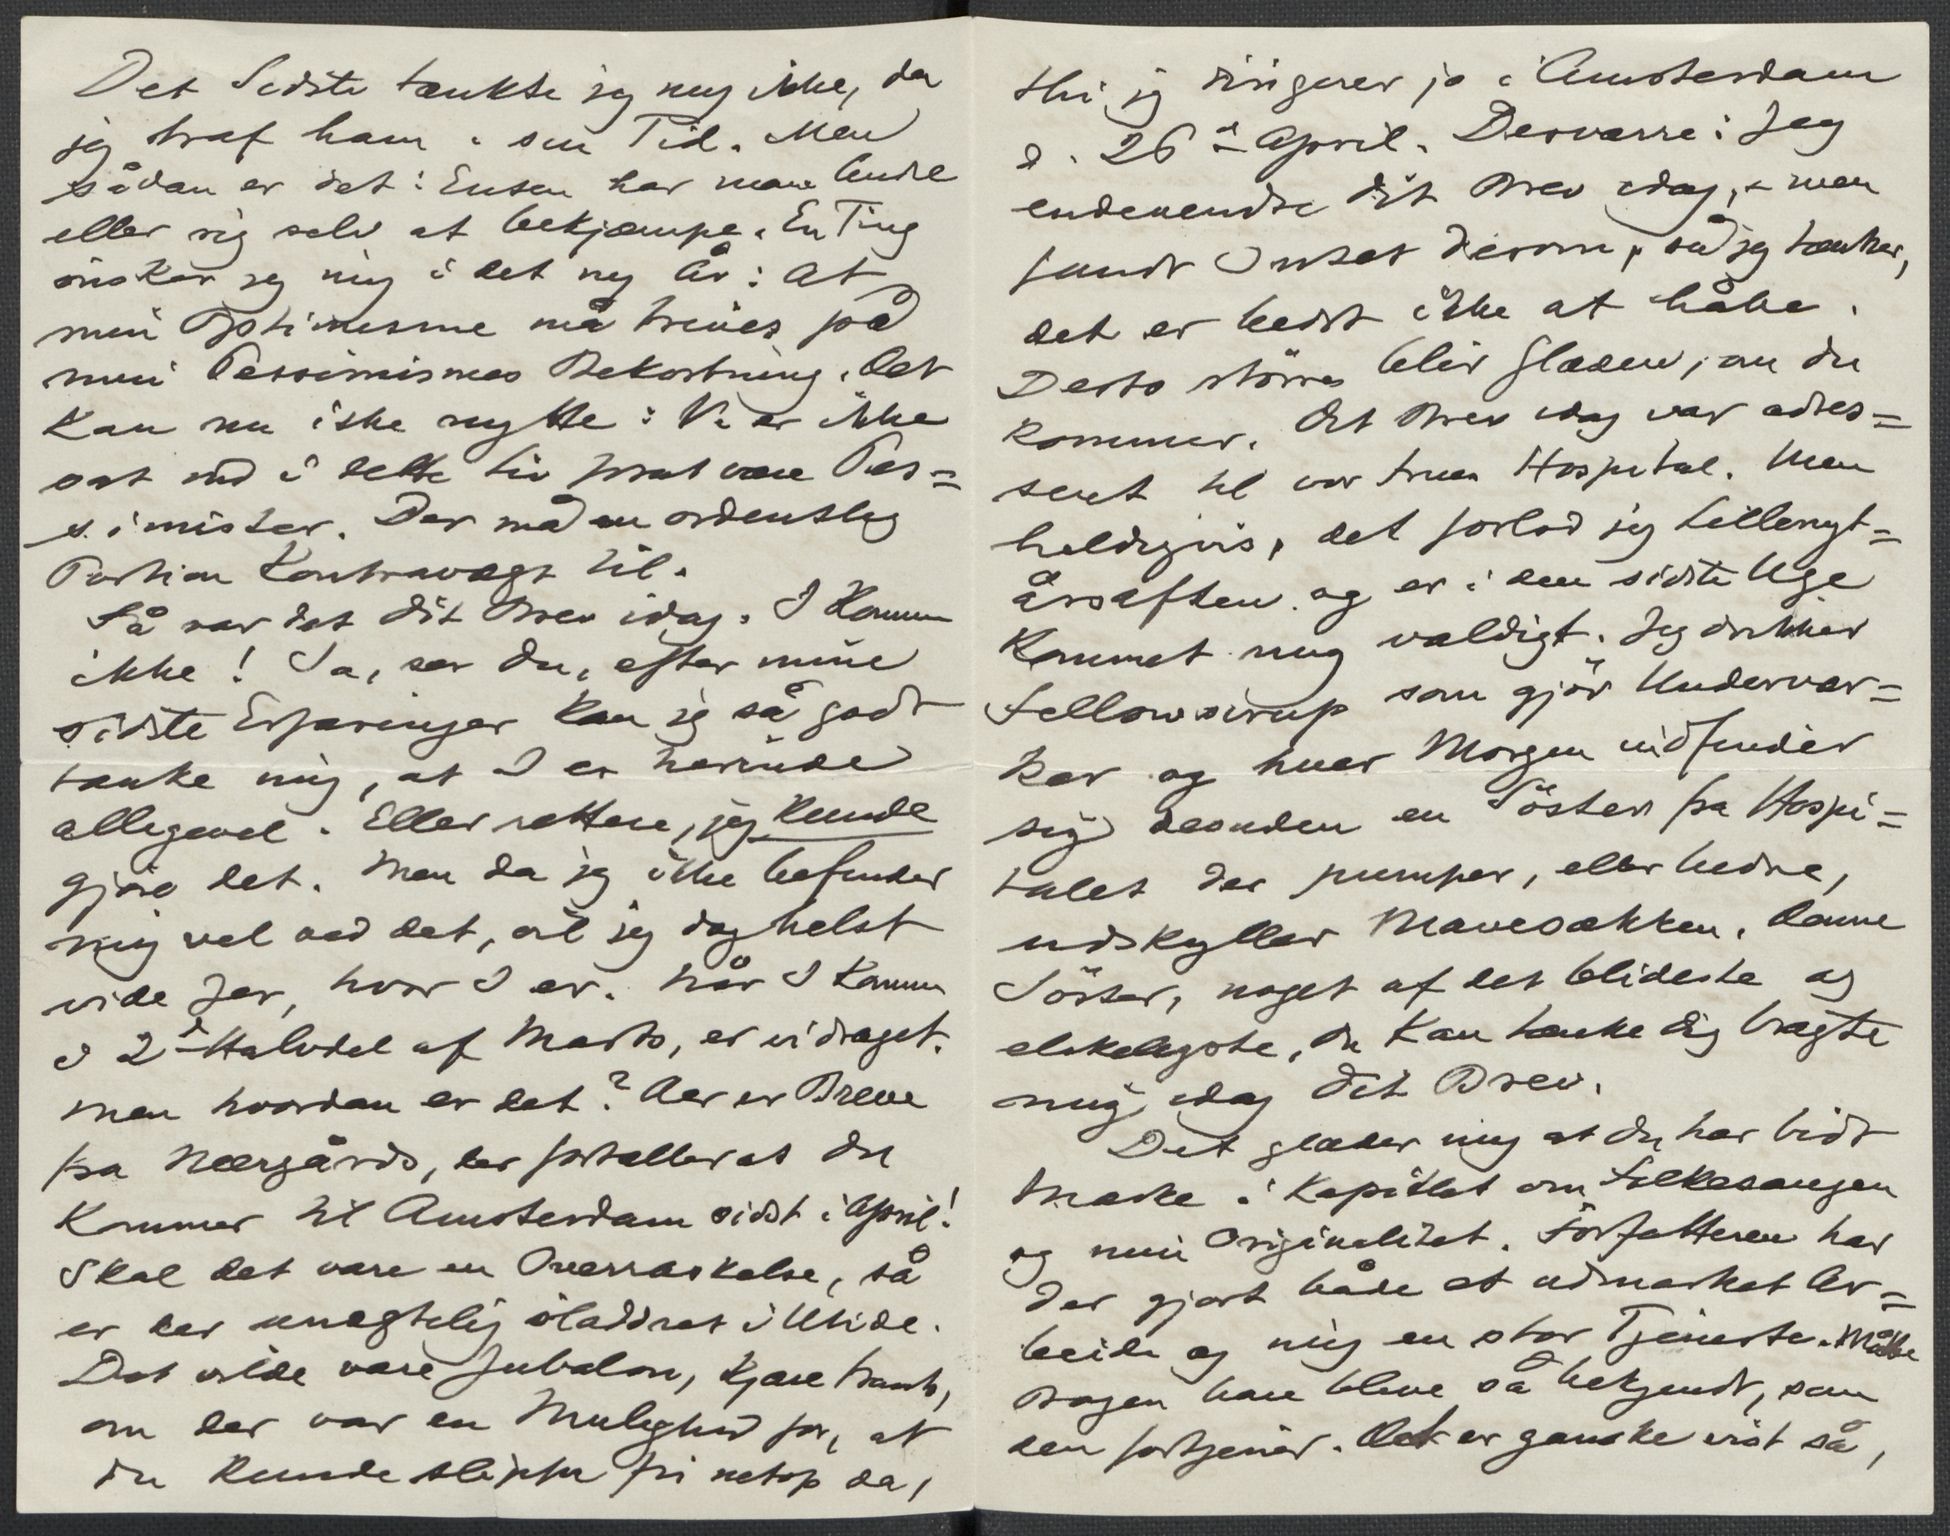 Det Sidste tænkte jeg mig ikke, da
jeg traf ham i sin Tid. Men
sådan er det: Enten har man Andre
eller sig selv at bekjæmpe. En Ting
ønsker jeg mig i det ny År: at
min Optimisme må trives på
min Pessimismes Bekostning. Det
kan nu ikke nytte: Vi er ikke
sat ind i dette Liv for at være Pes=
simister. Der må en ordentlig
Portion Kontravægt til.
Så var det dit Brev idag. I kommer
ikke! Ja, ser du, efter mine
sidste Erfaringer kan jeg så godt
tænke mig, at I er herinde
alligevel. Eller rettere, jeg kunde
gjøre det. Men da jeg ikke befinder
mig vel ved det, vil jeg dog helst
vide Jer, hvor I er. Når I kommer
i 2d Halvdel af Marts, er vi draget.
Men hvordan er det? Der er Breve
fra Neergårds, der fortæller at du
kommer til Amsterdam sidst i April!
Skal det være en Overraskelse, så
er der unægtelig sladdret i Utide.
Det vilde være jubelen, kjære Frants,
om der var en Mulighed for, at
du kunde slippe fri netop da,
thi jeg dirigerer jo i Amsterdam
d. 26d April. Desværre: Jeg
endevendte dit Brev idag, men
fandt Intet derom, så jeg tænker,
det er bedst ikke at håbe.
Desto större blir Glæden, om du
kommer. Dit Brev idag var adres=
seret til vor Frues Hospital. Men
heldigvis, det forlod jeg Lillenyt=
årsaften og er i den sidste Uge
kommet mig vældigt. Jeg drikker
Fellowsirup som gjör Undervær=
ker og hver Morgen indfinder
sig desuden en Söster fra Hospi=
talet der pumper, eller bedre,
udskyller Mavesækken. Denne
Söster, noget af det blideste og
elskeligste, du kan tænke dig bragte
mig idag dit Brev.
Det glæder mig at du har lidt
Mærke i Kapitlet om Folkesangen
og min Originalitet. Forfatteren har
der gjort både et udmærket Ar=
beide og mig en stor Tjeneste. Måtte
Bogen bare blive så bekjendt, som
den fortjener. Det er ganske vist så,